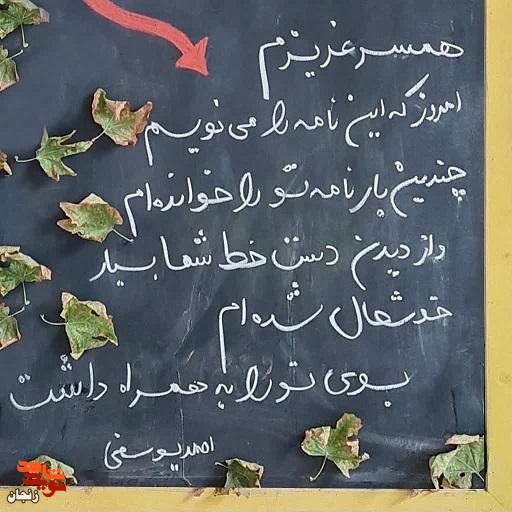 همسر عزیزم
امروز که این نامه را می نویسم
چندین بار نامه تو را خوانده ام
و از دیدن دست خط شما بسیار
خوشحال شده ام
بوی تو را به همراه داشت
احمد یوسفی
نوید شاهد
زنجان